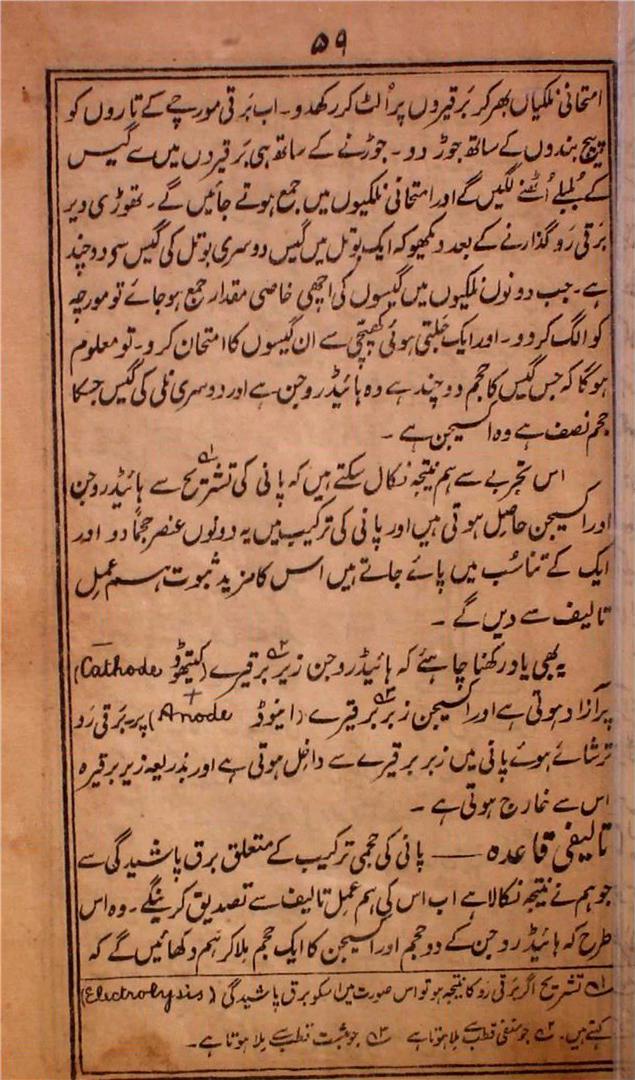 ۵۹
امتحانی نلکیاں بھر کر بَرقیروں پر اُلٹ کر رکھدو۔ اب بَرقی مورچے کے تاروں کو
پیچ بندوں کے ساتھ جوڑ دو۔ جوڑنے کے ساتھ ہی بَرقیروں میں سے گیس
کے بُلبلے اُٹھنے لگیں گے اور امتحانی نلکیوں میں جمع ہوتے جائیں گے۔ تھوڑی دیر
بَرقی رَو گذارنے کے بعد دیکھو کہ ایک بوتل میں گیس دوسری بوتل کی گیس سی دوچند
ہے۔ جب دونوں نلکیوں میں گیسوں کی اچھی خاصی مقدار جمع ہو جائے تو مورچہ
کو الگ کر دو۔ اور ایک جَلتی ہوئی کھپچّی سے ان گیسوں کا امتحان کرو۔ تو معلوم
ہوگا کہ جس گیس کا حجم دوچند ہے وہ ہائیڈروجن ہے اور دوسری نلی کی گیس جسکا
حجم نصف ہے وہ اکسیجن ہے۔
اس تجربے سے ہم نتیجہ نکال سکتے ہیں کہ پانی کی تشریح۱؎ سے ہائیڈروجن
اور اکسیجن حاصل ہوتی ہیں اور پانی کی ترکیب میں یہ دونوں عنصر حجماً دو اور
ایک کے تناسُب میں پائے جاتے ہیں اس کا مزید ثبوت ہم عمل
تالیف سے دیں گے۔
یہ بھی یاد رکھنا چاہئے کہ ہائیڈروجن زیر برقیرے۲؎ (کیتھوڈ Cathode) −
پر آزاد ہوتی ہے اور اکسیجن زبر برقیرے۳؎ (اینوڈ Anode) + پر۔ بَرقی رَو
ترشائے ہوئے پانی میں زبر برقیرے سے داخل ہوتی ہے اور بذریعہ زیر برقیرہ
اس سے خارج ہوتی ہے۔
تالیفی قاعدہ — پانی کی حجمی ترکیب کے متعلق برق پاشیدگی سے
جو ہم نے نتیجہ نکالا ہے اب اس کی ہم عمل تالیف سے تصدیق کرینگے۔ وہ اس
طرح کہ ہائیڈروجن کے دو حجم اور اکسیجن کا ایک حجم ملا کر ہم دکھائیں گے کہ
۱؎ تشریح اگر بَرقی رَو کا نتیجہ ہو تو اس صورت میں اسکو برق پاشیدگی (Electrolysis)
کہتے ہیں۔ ۲؎ جو منفی قطب سے ملا ہوتا ہے ۳؎ جو مثبت قطب سے ملا ہوتا ہے۔